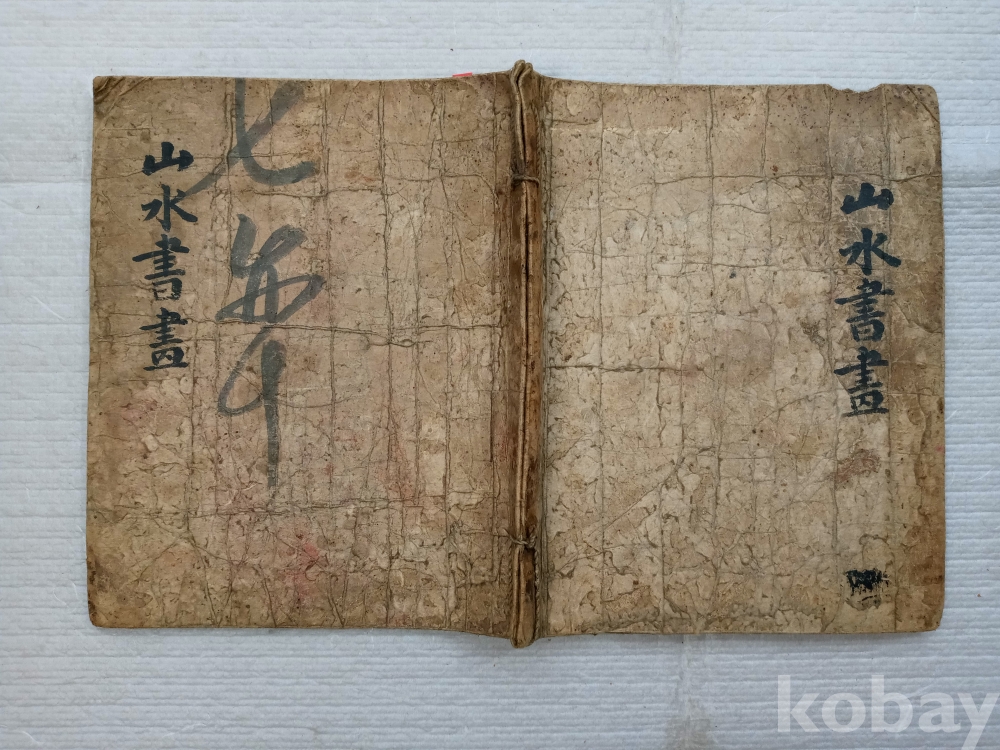 山水書畫
七
山水書畫
kobay